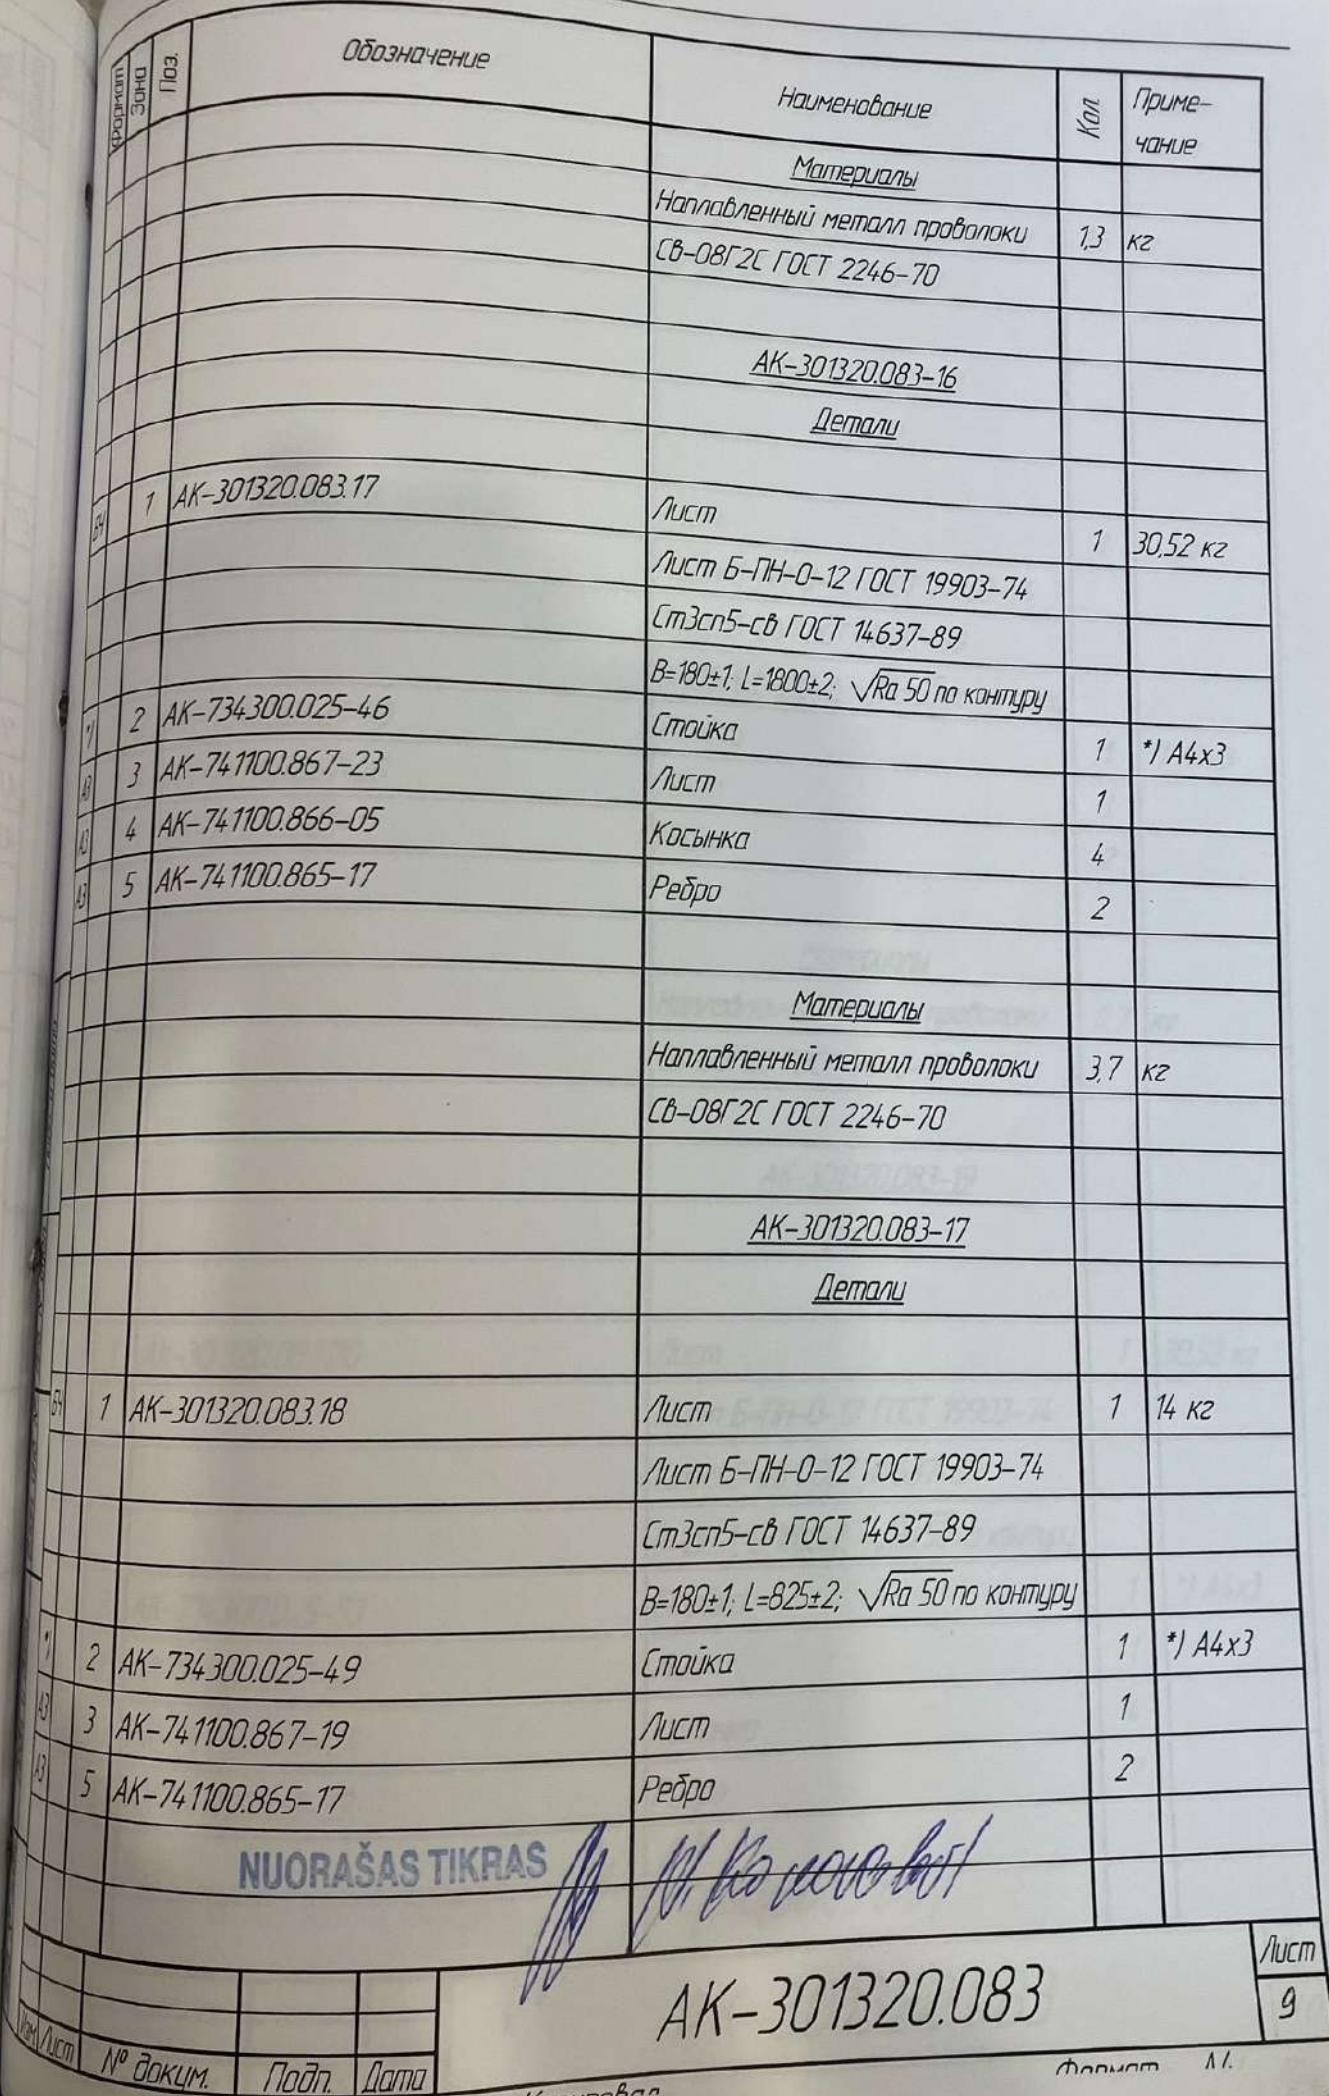 Формат Зона Поз. Обозначение Наименование Кол. Приме-
чание
Материалы
Наплавленный металл проволоки 1,3 кг
Св-08Г2С ГОСТ 2246-70
АК-301320.083-16
Детали
БЧ 1 АК-301320.083.17 Лист 1 30,52 кг
Лист Б-ПН-О-12 ГОСТ 19903-74
Ст3сп5-св ГОСТ 14637-89
В=180±1; L=1800±2; √Ra 50 по контуру
*) 2 АК-734300.025-46 Стойка 1 *) А4х3
А3 3 АК-741100.867-23 Лист 1
А3 4 АК-741100.866-05 Косынка 4
А3 5 АК-741100.865-17 Ребро 2
Материалы
Наплавленный металл проволоки 3,7 кг
Св-08Г2С ГОСТ 2246-70
АК-301320.083-17
Детали
БЧ 1 АК-301320.083.18 Лист 1 14 кг
Лист Б-ПН-О-12 ГОСТ 19903-74
Ст3сп5-св ГОСТ 14637-89
В=180±1; L=825±2; √Ra 50 по контуру
*) 2 АК-734300.025-49 Стойка 1 *) А4х3
А3 3 АК-741100.867-19 Лист 1
А3 5 АК-741100.865-17 Ребро 2
NUORAŠAS TIKRAS
АК-301320.083 Лист
9
Изм Лист № докум. Подп. Дата
Формат